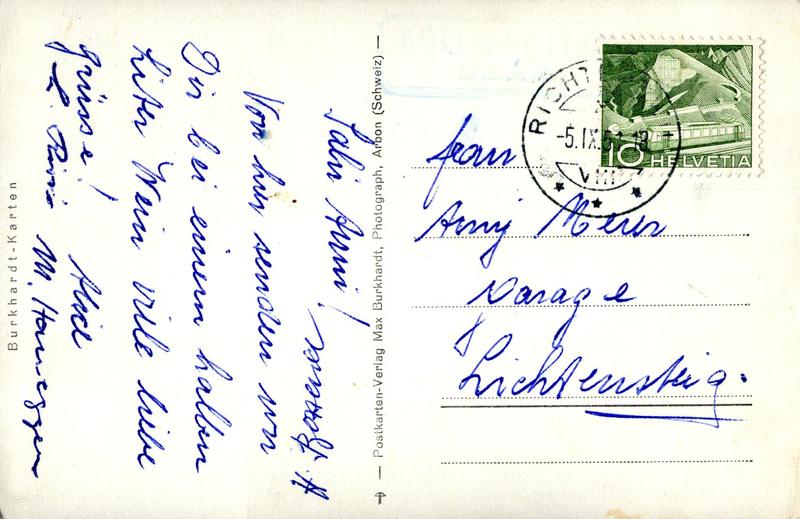 Burkhardt-Karten
Salü Anni!
Von hier senden wir
Dir bei einem halben
Liter Wein viele liebe
grüsse!
Alice
M. Honegger
Postkarten-Verlag Max Burkhardt, Photograph, Arbon (Schweiz)
RICHT
-5.IX.51-18
VIII
10 HELVETIA
Frau
Anny
Garage
Lichtensteig.